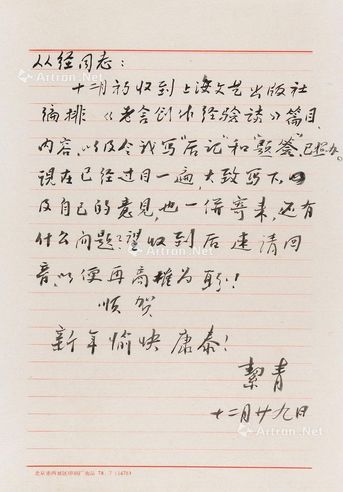 从经同志：
十二月初收到上海文艺出版社
编排《老舍创作经验谈》篇目、
内容，以及令我写“后记”和“题签”，已照办。
现在已经过目一遍，大致写下
及自己的意见，也一併寄来，还有
什么问题？望收到后速请回
音，以便再商榷为盼！
顺贺
新年愉快康泰！
絜青
十二月廿九日
Artron.Net
Artron.Net
Artron.Net
Artron.Net